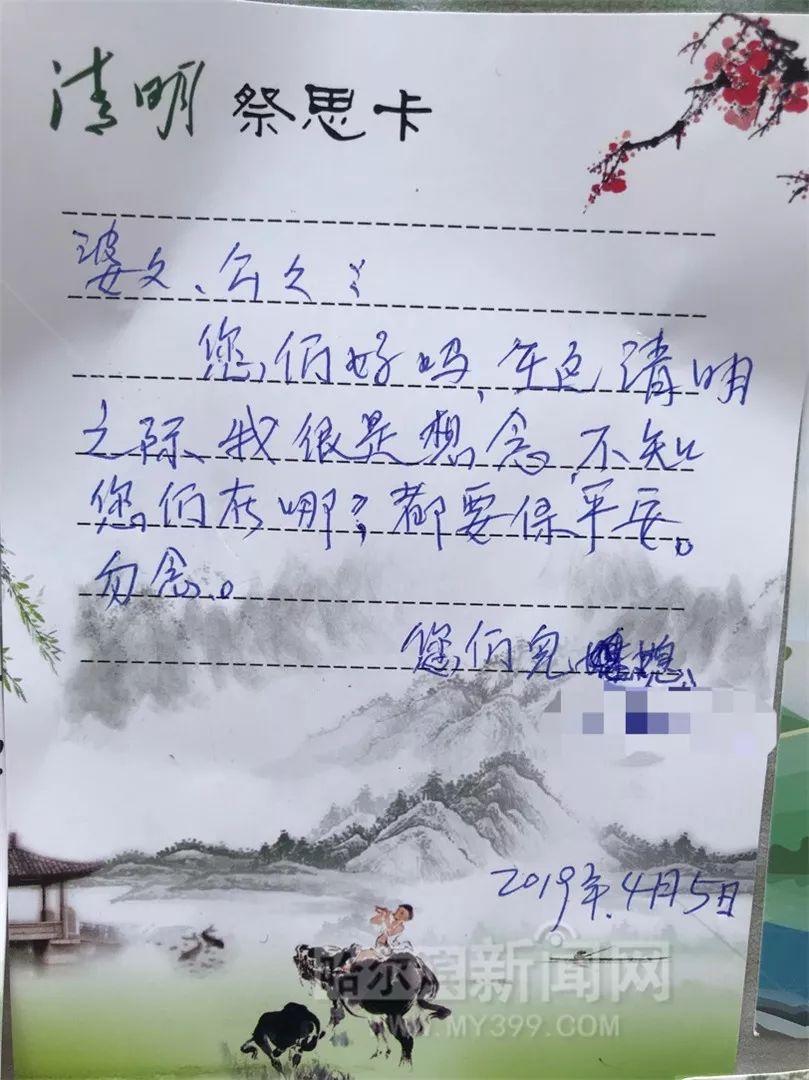 清明 祭思卡
婆父、公久:
您们好吗,年逢清明
之际、我很是想念,不知
您们在哪?都要保平安。
勿念。
您们儿媳
2019年.4月5日
哈尔滨新闻网
WWW.MY399.COM